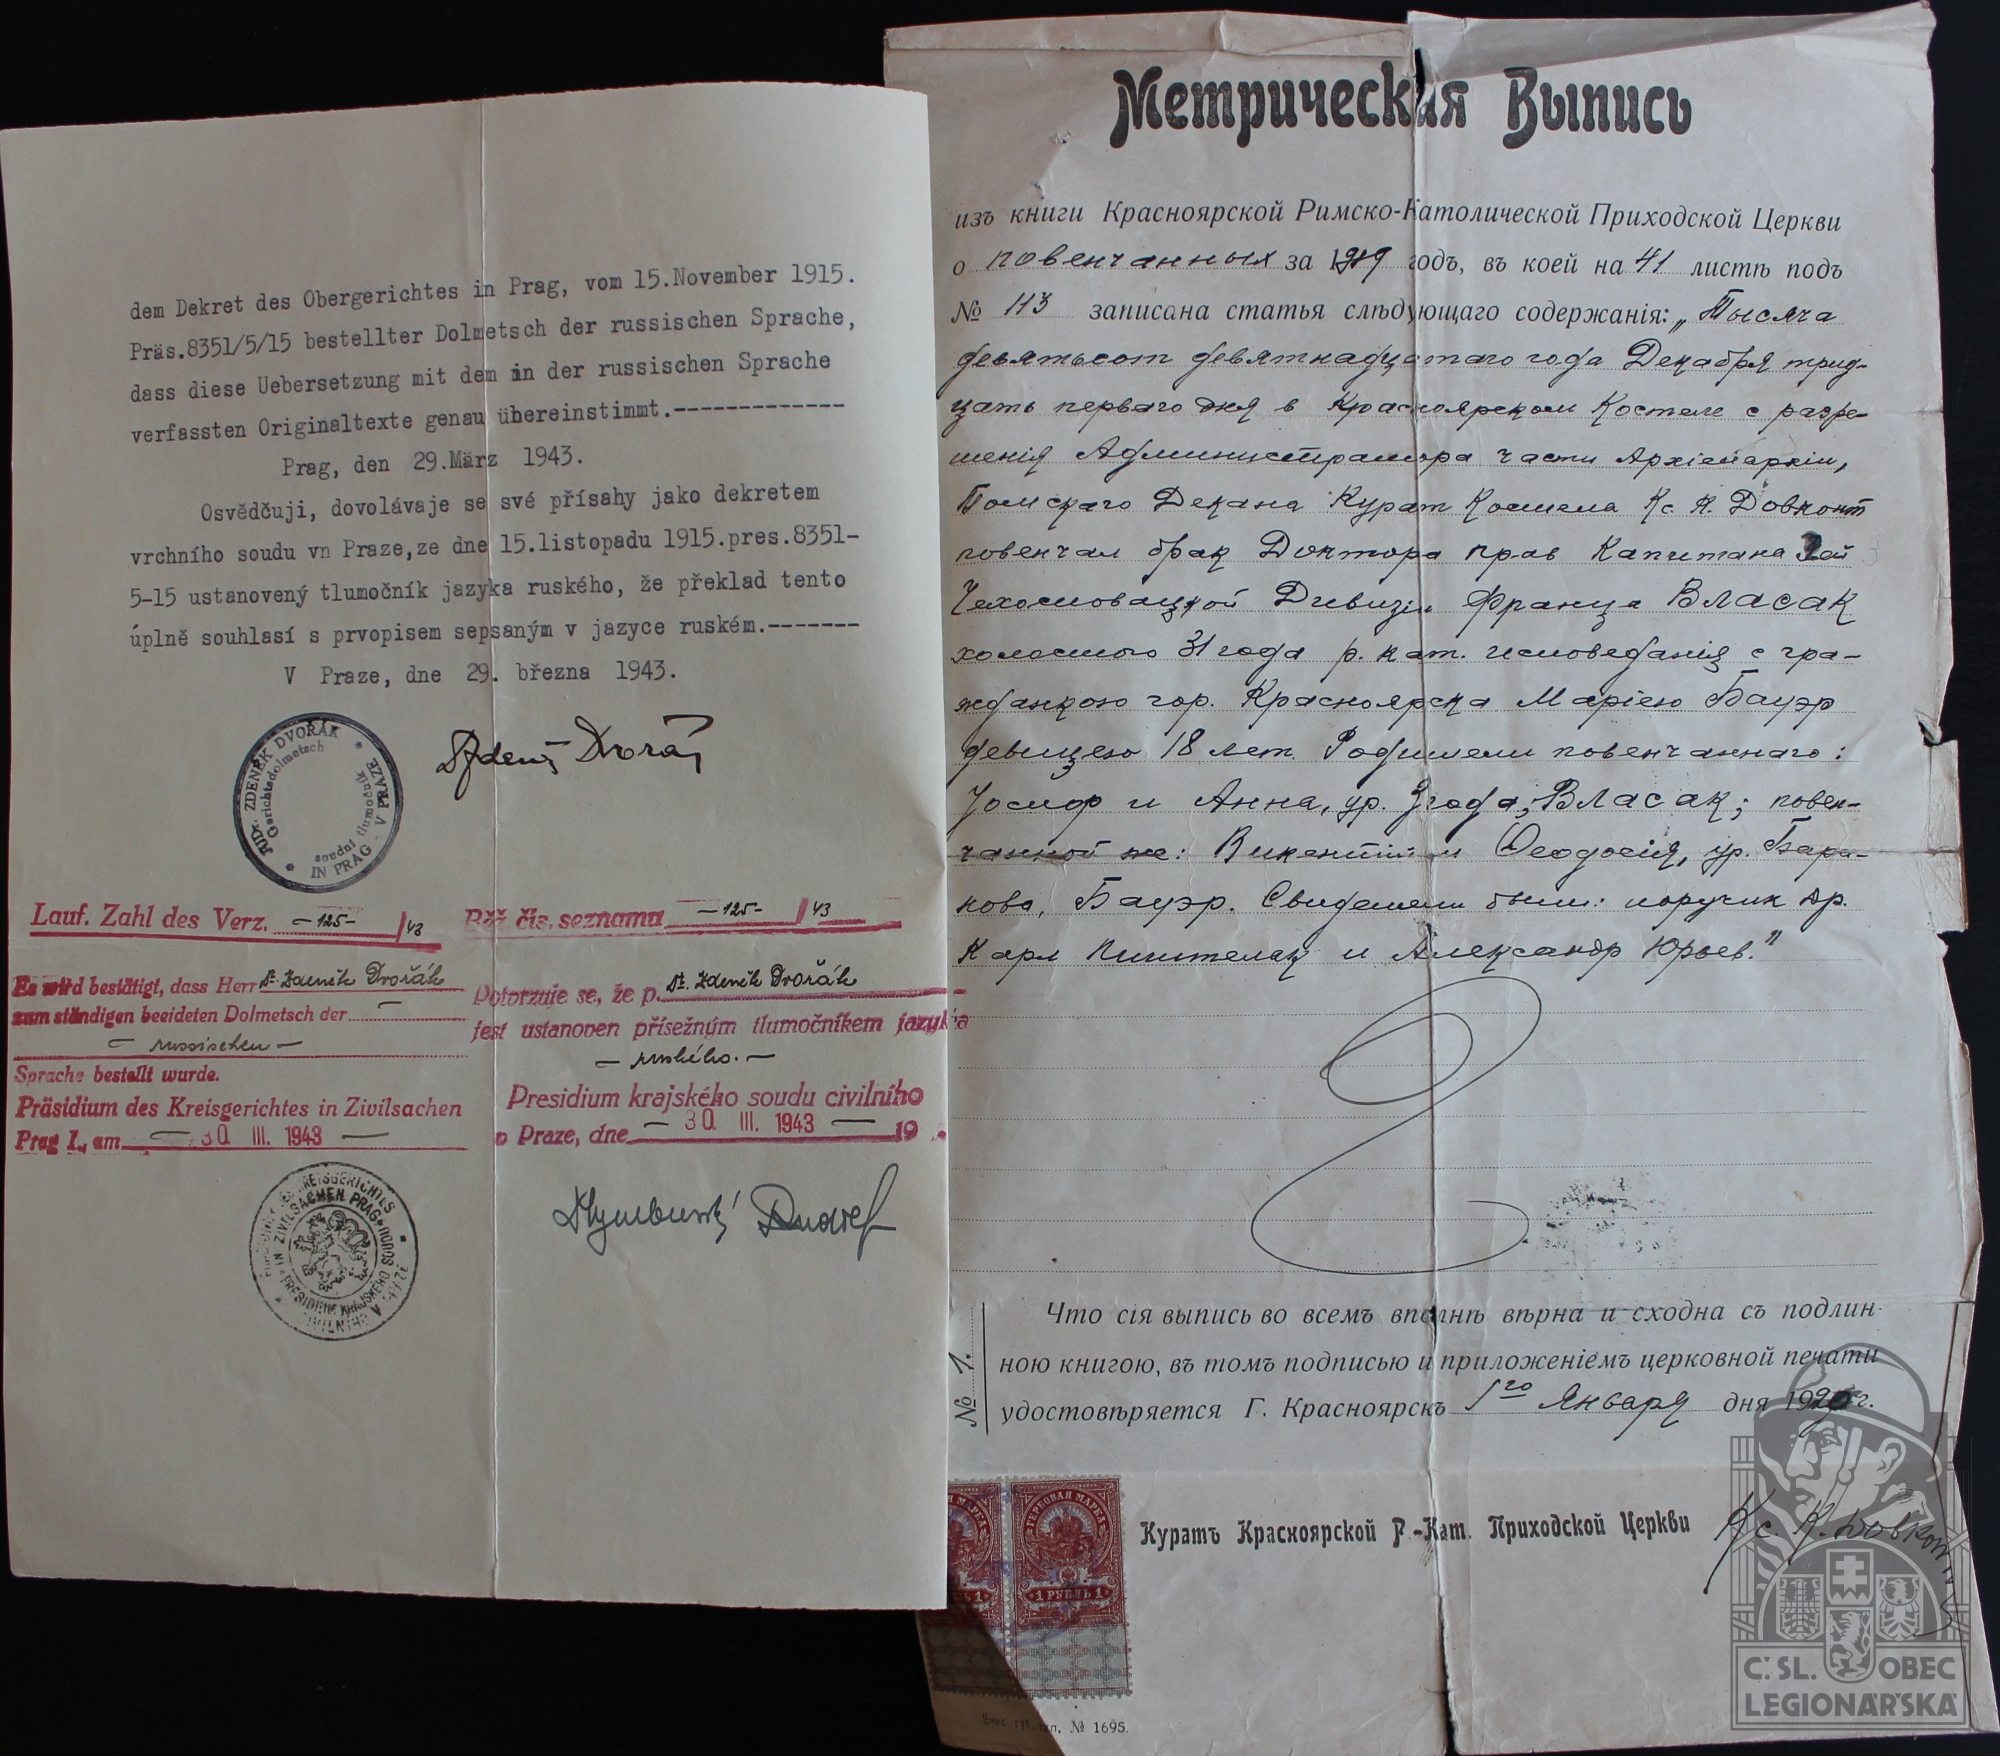 dem Dekret des Obergerichtes in Prag, vom 15.November 1915.
Präs.8351/5/15 bestellter Dolmetsch der russischen Sprache,
dass diese Uebersetzung mit dem in der russischen Sprache
verfassten Originaltexte genau übereinstimmt.-------------
Prag, den 29.März 1943.
Osvědčuji, dovolávaje se své přísahy jako dekretem
vrchního soudu vn Praze,ze dne 15.listopadu 1915.pres.8351-
5-15 ustanovený tlumočník jazyka ruského, že překlad tento
úplně souhlasí s prvopisem sepsaným v jazyce ruském.-------
V Praze, dne 29. března 1943.
JUDr. ZDENĚK DVOŘÁK V PRAZE * IN PRAG *
Gerichtsdolmetsch soudní tlumočník
Zdeněk Dvořák
Lauf. Zahl des Verz. -125-/43
Běž. čís. seznamu -125-/43
Es wird bestätigt, dass Herr Dr. Zdeněk Dvořák
zum ständigen beeideten Dolmetsch der -
- russischen -
Sprache bestellt wurde.
Präsidium des Kreisgerichtes in Zivilsachen
Prag I., am - 30 III. 1943 -
Potvrzuje se, že p. Dr. Zdeněk Dvořák
jest ustanoven přísežným tlumočníkem jazyka
- ruského. -
Presidium krajského soudu civilního
v Praze, dne - 30 III. 1943 - 19
PRÄSIDIUM DES KREISGERICHTES IN ZIVILSACHEN PRAG * PRESIDIUM KRAJSKÉHO SOUDU CIVILNÍHO V PRAZE *
Метрическая Выпись
изъ книги Красноярской Римско-Католической Приходской Церкви
о повенчанных за 1919 годъ, въ коей на 41 листѣ подъ
№ 113 записана статья слѣдующаго содержанія: „Тысяча
девятьсот девятнадцатаго года Декабря трид-
цать перваго дня в Красноярском Костеле с разре-
шенія Администратора части Архіепархіи,
Томскаго Декана Курат Костела Кс. К. Довконт
повенчал брак Доктора прав Капитана 3ей
Чехословацкой Дивизіи Франца Власак
холостого 31 года р. кат. исповеданія с гра-
жданкою гор. Красноярска Маріею Бауэр
девицею 18 лет. Родители повенчаннаго:
Иосиф и Анна, ур. Згода, Власак; повен-
чанной же: Викентій и Феодосія, ур. Бара-
нова, Бауэр. Свидетели были: поручик др.
Карл и Александр Юрьев."
Что сія выпись во всемъ вполнѣ вѣрна и сходна съ подлин-
ною книгою, въ томъ подписью и приложеніемъ церковной печати
удостовѣряется Г. Красноярскъ 1го Января дня 1920 г.
№ 1.
ГЕРБОВАЯ МАРКА
1 РУБЛЬ 1
ГЕРБОВАЯ МАРКА
1 РУБЛЬ 1
Куратъ Красноярской Р.-Кат. Приходской Церкви Кс. К. Довконт
Енис. губ. тип. № 1695.
Č. SL. OBEC
LEGIONÁŘSKÁ